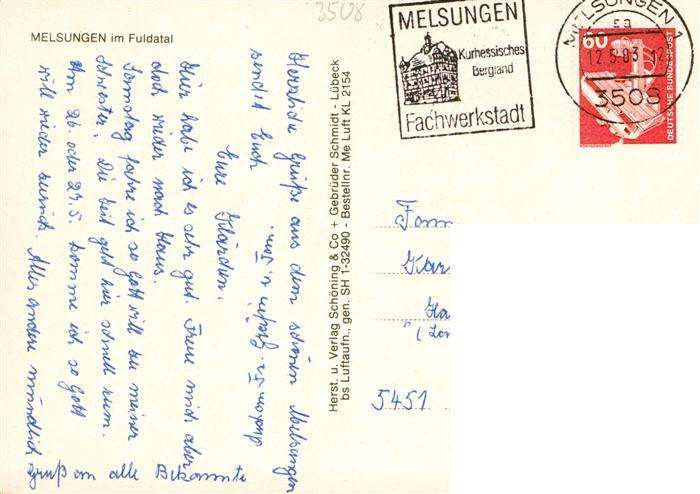 3508
MELSUNGEN im Fuldatal
MELSUNGEN
Kurhessisches
Bergland
Fachwerkstadt
MELSUNGEN 1
12.5.83
3508
60
DEUTSCHE BUNDESPOST
Herzliche Grüße aus dem schönen Melsungen
sendet Euch
Eure Klärchen.
Hier habe ich es sehr gut. Freue mich aber
doch wieder nach Haus.
Samstag fahre ich so Gott will zu meiner
Schwester. Die Zeit geht hier schnell rum.
Am 26. oder 27.5. komme ich so Gott
will wieder zurück. Alles andere mündlich
Gruß an alle Bekannte
Herst. u. Verlag Schöning & Co + Gebrüder Schmidt - Lübeck
bs Luftaufn., gen. SH 1-32490 - Bestellnr. Me Luft KL 2154
Fam
5451